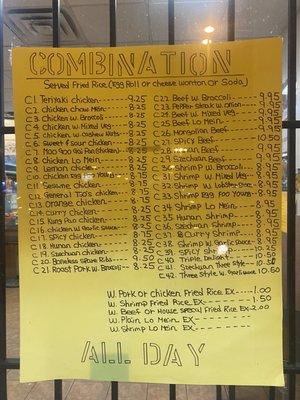 COMBINATION
Served Fried Rice (Egg Roll or Cheese Wonton or Soda)
C1. Teriyaki chicken 9.25
C2. Chicken Chow Mein 8.25
C3. Chicken w. Broccoli 8.25
C4. Chicken w. Mixed Veg 8.25
C5. Chicken w. Cashew Nuts 8.25
C6. Sweet & Sour chicken 8.25
C7. Moo Goo Gai Pan 8.25
C8. Chicken Lo Mein 8.25
C9. Lemon chicken
C10. Chicken Egg Foo Young
C11. Sesame chicken 8.75
C12. General Tso's chicken 8.75
C13. Orange chicken 8.75
C14. Curry chicken 8.25
C15. Kung Pao chicken 8.25
C16. Chicken w. Garlic Sauce 8.25
C17. Spicy chicken 8.75
C18. Hunan chicken 8.25
C19. Szechuan chicken 8.25
C20. Boneless Spare Ribs 9.50
C21. Roast Pork w. Broccoli 8.25
C22. Beef w. Broccoli 9.95
C23. Pepper Steak w. Onion 9.95
C24. Beef w. Mixed Veg 9.95
C25. Beef Lo Mein 9.95
C26. Mongolian Beef 9.95
C27. Spicy Beef 10.50
Beef 9.95
C29. Szechuan Beef 9.95
C30. Shrimp w. Broccoli 8.95
C31. Shrimp w. Mixed Veg 8.95
C32. Shrimp w. Lobster Sauce 8.95
C33. Shrimp Egg Foo Young 8.95
C34. Shrimp Lo Mein 8.95
C35. Hunan Shrimp 8.95
C36. Szechuan Shrimp 8.95
C37. Curry Shrimp 8.95
C38. Shrimp w. Garlic Sauce 8.95
C39. Spicy Shrimp 10.25
C40. Triple Delight 10.50
C41. Szechuan Three Style 10.50
C42. Three Style w. Garlic Sauce 10.50
W. Pork or Chicken Fried Rice Ex 1.00
W. Shrimp Fried Rice Ex 1.50
W. Beef or House Special Fried Rice Ex 2.00
W. Plain Lo Mein Ex
W. Shrimp Lo Mein Ex
ALL DAY